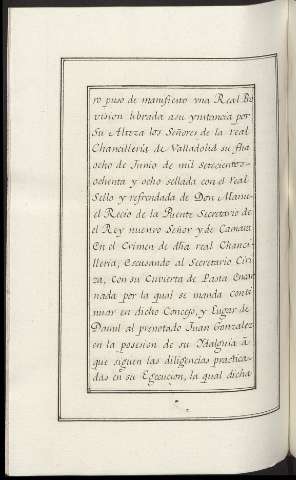 ro puso de manifiesto vna Real Pro
vision librada asu ynstancia por
Su Alteza los Señores de la real
Chancilleria de Valladolid su fha
ocho de Junio de mil setecientos
ochenta y ocho sellada con el real
Sello y refrendada de Don Manu-
el Recio de la Puente Secretario de
el Rey nuestro Señor y de Camara
En el Crimen de dha real Chanci-
lleria, Escusando al Secretario
con su Cuvierta de Pasta
nada por la qual se manda conti
nuar en dicho Concejo, y Lugar de
al prenotado Juan Gonzalez
en la posesion de su Hidalguia á
que siguen las diligencias practica-
das en su Egecucion, la qual dicha